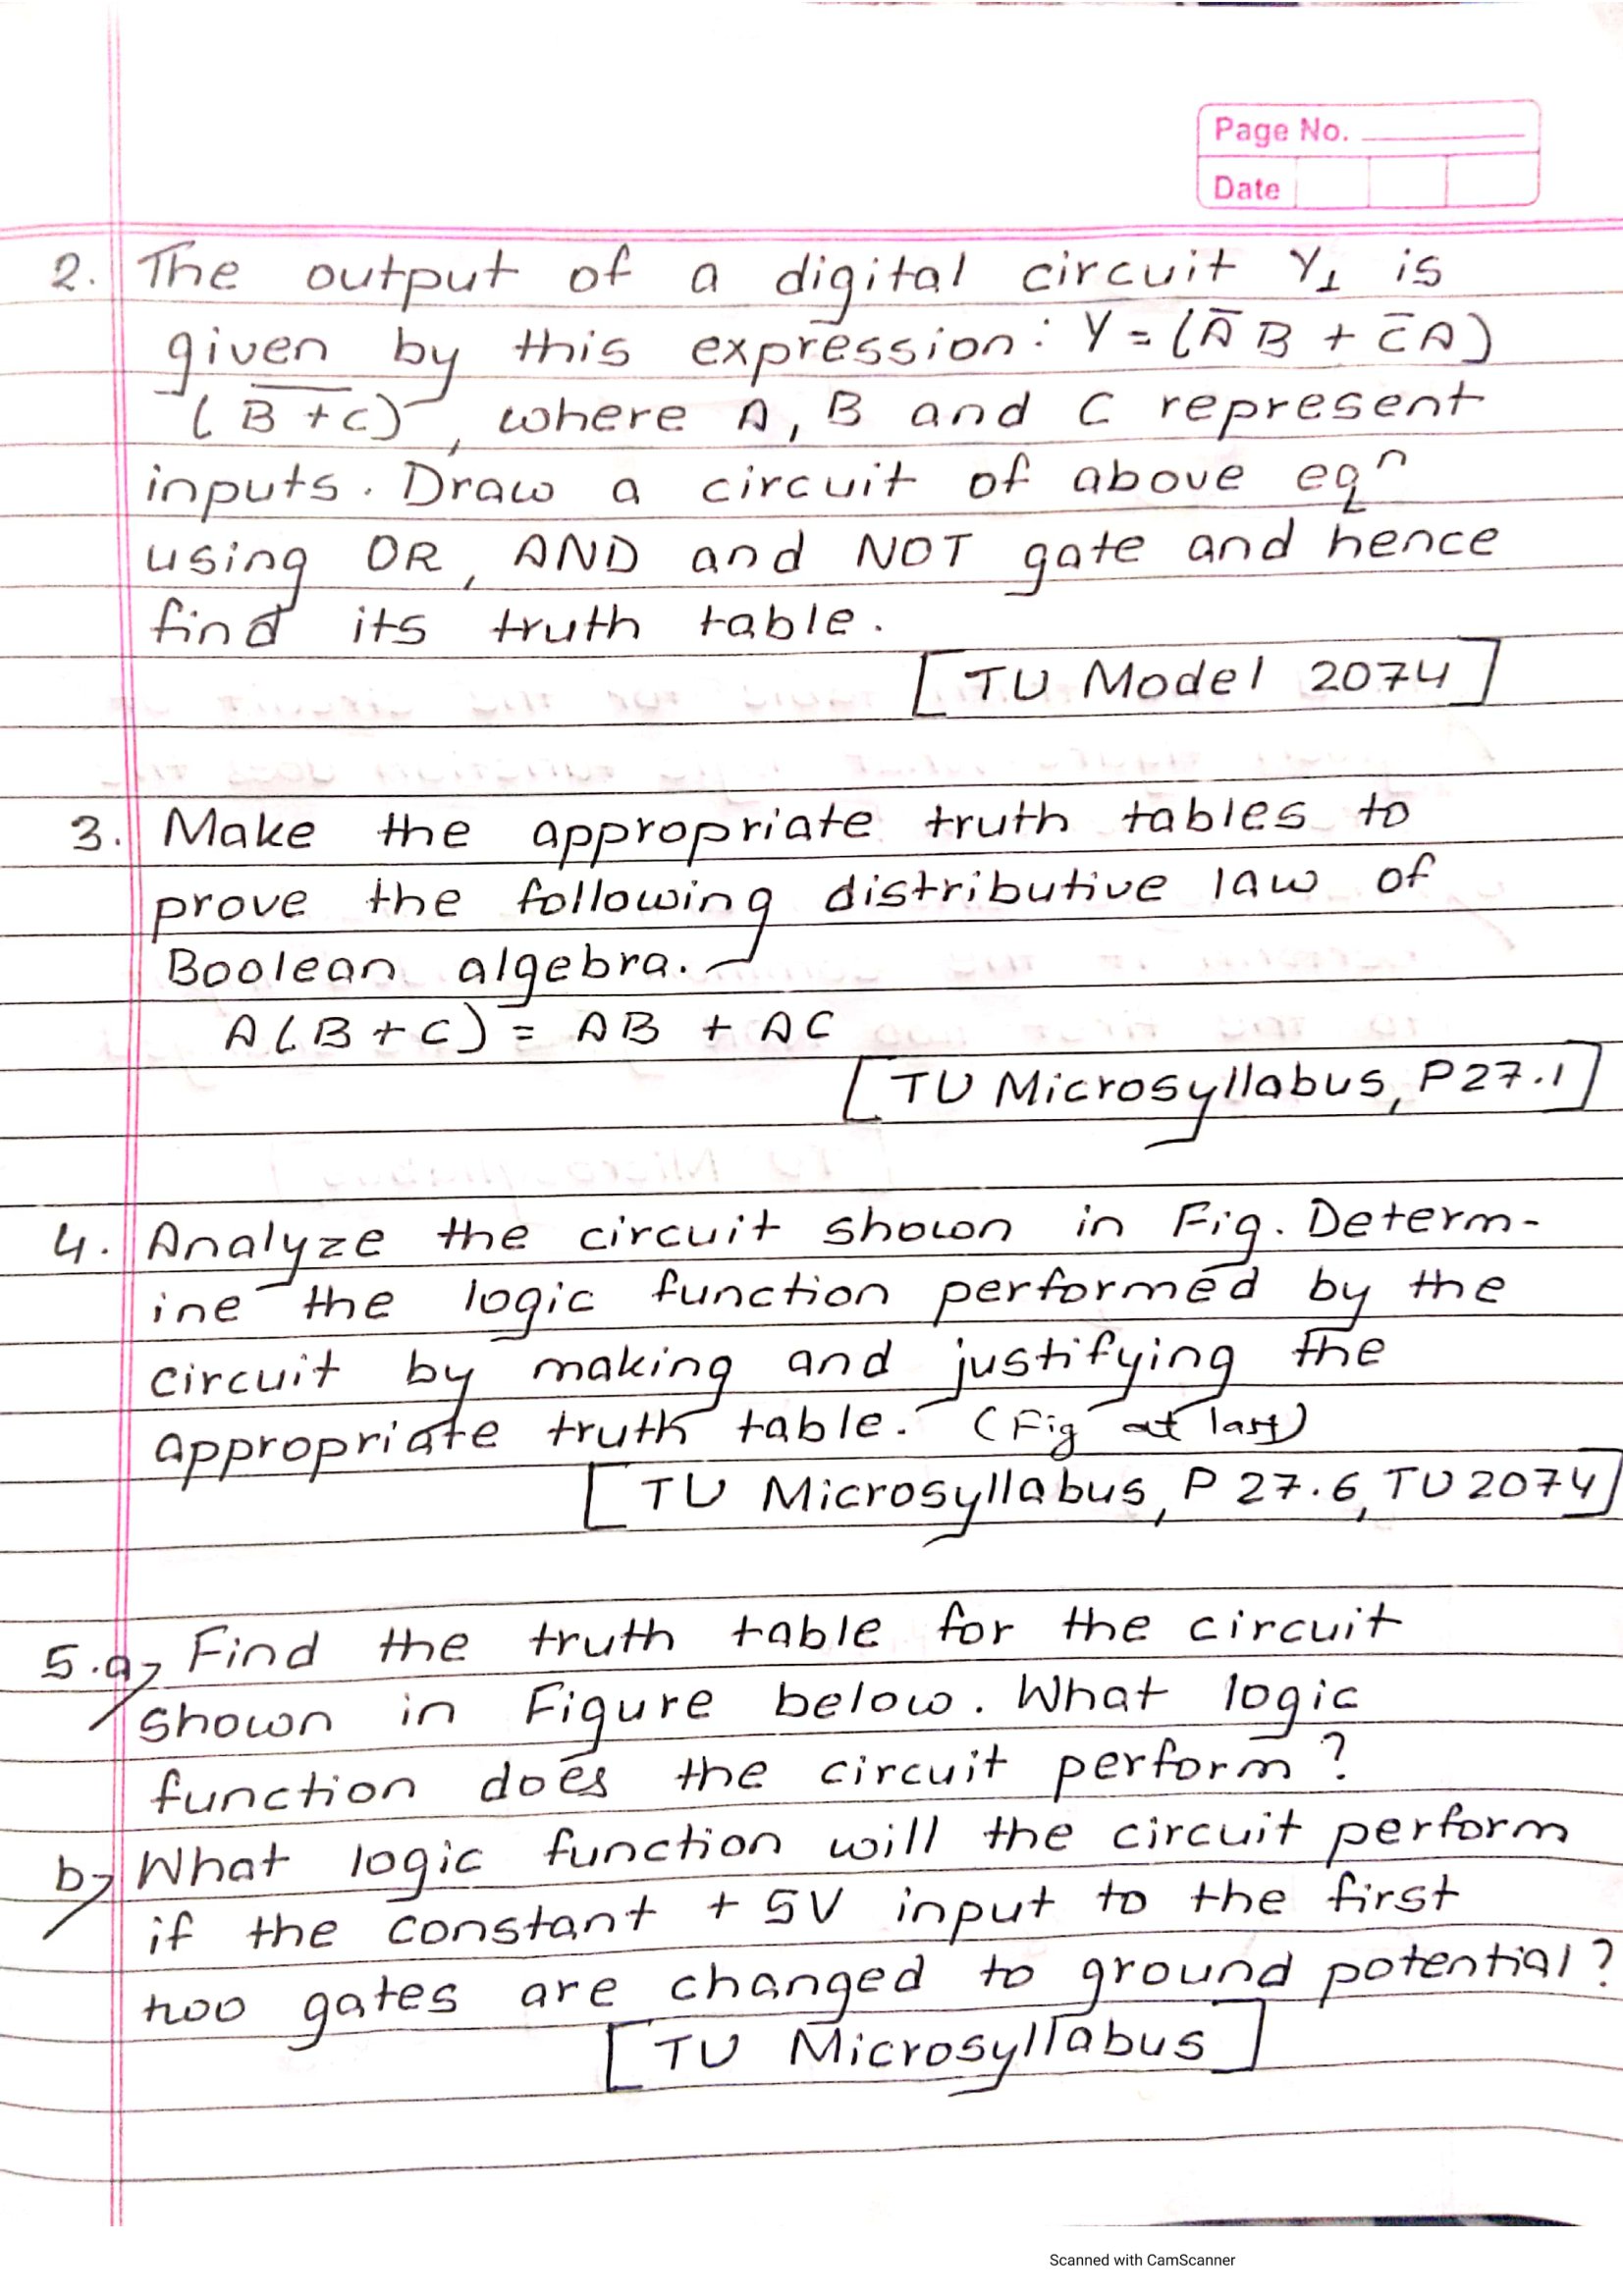 Page No.
Date
2. The output of a digital circuit Y₁ is
given by this expression: Y = (A̅ B + C̅ A)
(B̅ ̅+̅ ̅C̅), where A, B and C represent
inputs. Draw a circuit of above eqⁿ
using OR, AND and NOT gate and hence
find its truth table.
[TU Model 2074]
3. Make the appropriate truth tables to
prove the following distributive law of
Boolean algebra.
A(B + C) = AB + AC
[TU Microsyllabus, P27.1]
4. Analyze the circuit shown in Fig. Determ-
ine the logic function performed by the
circuit by making and justifying the
appropriate truth table. (Fig at last)
[TU Microsyllabus, P 27.6, TU 2074]
5.a, Find the truth table for the circuit
shown in Figure below. What logic
function does the circuit perform?
b, What logic function will the circuit perform
if the constant + 5V input to the first
two gates are changed to ground potential?
[TU Microsyllabus]
Scanned with CamScanner